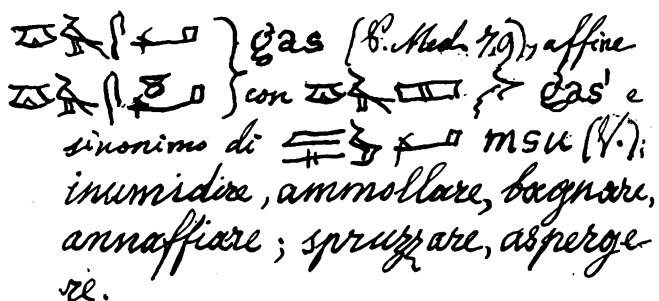 gas (P. Med. 7.9), affine
con gas' e
sinonimo di msu (V.);
inumidire, ammollare, bagnare,
annaffiare; spruzzare, asperge-
re.